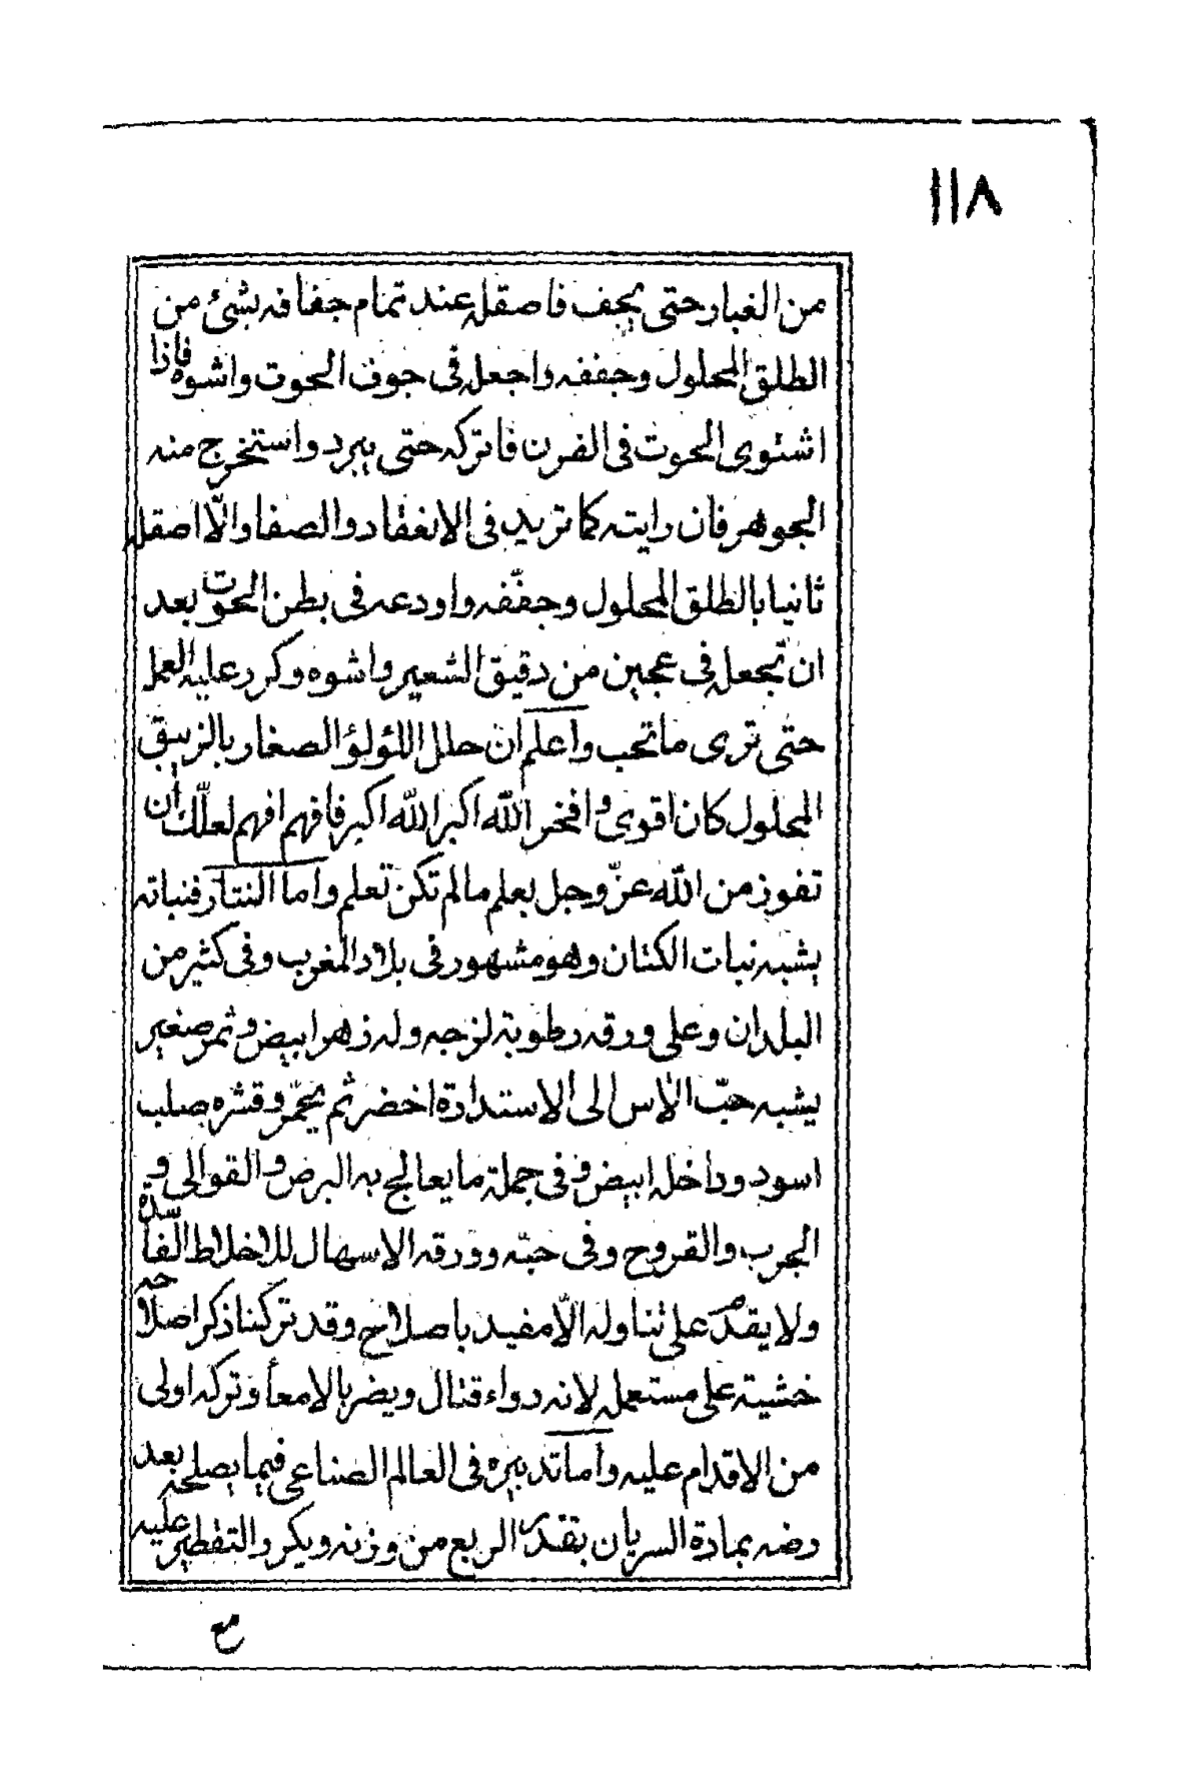 ١١٨
من الغبار حتى يجف فاصقله عند تمام جفافه بشئ من
الطلق المحلول وجففه واجعله فى جوف الحوت واشوه فاذا
اشتوى الحوت فى الفرن فاتركه حتى يبرد واستخرج منه
الجوهر فان رايته كما تريد فى الانعقاد والصفا والّا اصقله
ثانيا بالطلق المحلول وجفّفه واودعه فى بطن الحوت بعد
ان تجعله فى عجين من دقيق الشعير واشوه وكرر عليه العمل
حتى ترى ما تحب واعلم ان حلل اللؤلؤ الصغار بالزيبق
المحلول كان اقوى وافخر الله اكبر الله اكبر فافهم افهم لعلّك ان
تفوز من الله عزّ وجل بعلم ما لم تكن تعلم واما النتار فنباته
يشبه نبات الكتان وهو مشهور فى بلاد المغرب وفى كثير من
البلدان وعلى ورقه رطوبة لزجه وله زهر ابيض وثمر صغير
يشبه حبّ الآس الى الاستدارة اخضر ثم يحمّر وقشره صلب
اسود وداخله ابيض وفى جملة ما يعالج به البرص والقوابى و
الجرب والقروح وفى حبّه وورقه الاسهال للاخلاط الفاسدة
ولا يقدم على تناوله الّا مفيد باصلاح وقد تركنا ذكر اصلاحه
خشية على مستعمله لانه دواء قتال ويضر بالامعأ وتركه اولى
من الاقدام عليه واما تدبيره فى العالم الصناعى فيما يصلحه بعد
رضه بمادة السريان بقدر الربع من وزنه ويكرر التقطير عليه
مع